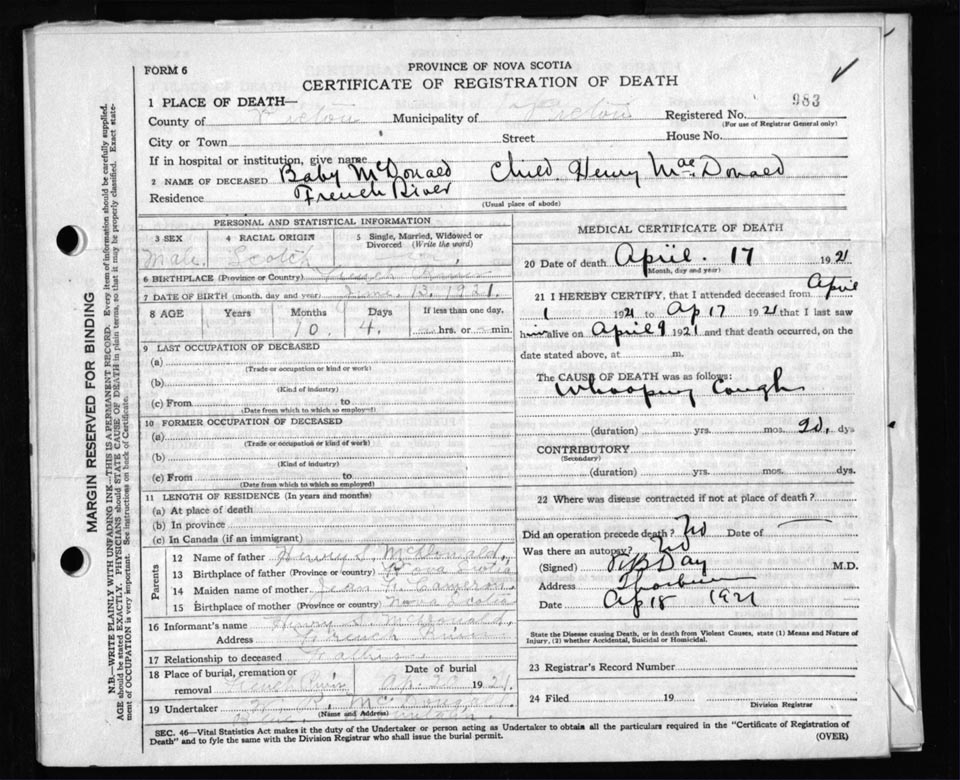 FORM 6
PROVINCE OF NOVA SCOTIA
CERTIFICATE OF REGISTRATION OF DEATH
983
1 PLACE OF DEATH—
County of Pictou Municipality of Pictou Registered No.
(For use of Registrar General only)
City or Town Street House No.
If in hospital or institution, give name
2 NAME OF DECEASED Baby McDonald Child Henry MacDonald
Residence French River
(Usual place of abode)
PERSONAL AND STATISTICAL INFORMATION
3 SEX 4 RACIAL ORIGIN 5 Single, Married, Widowed or Divorced (Write the word)
Male. Scotch
6 BIRTHPLACE (Province or Country) French River
7 DATE OF BIRTH (month, day and year) 13. 1921.
8 AGE Years Months Days If less than one day,
10. 4. hrs. or min.
9 LAST OCCUPATION OF DECEASED
(a)
(Trade or occupation or kind or work)
(b)
(Kind of industry)
(c) From to
(Date from which to which so employed)
10 FORMER OCCUPATION OF DECEASED
(a)
(Trade or occupation or kind of work)
(b)
(Kind of industry)
(c) From to
(Date from which to which so employed)
11 LENGTH OF RESIDENCE (In years and months)
(a) At place of death
(b) In province
(c) In Canada (if an immigrant)
Parents
12 Name of father Henry S. McDonald,
13 Birthplace of father (Province or country) Nova Scotia
14 Maiden name of mother Cameron
15 Birthplace of mother (Province or country) Nova Scotia
16 Informant's name Henry S. McDonald,
Address French River
17 Relationship to deceased Father
18 Place of burial, cremation or removal French River Date of burial Ap. 20 1921.
19 Undertaker
(Name and Address)
MEDICAL CERTIFICATE OF DEATH
20 Date of death April. 17 1921
(Month, day and year)
21 I HEREBY CERTIFY, that I attended deceased from April
1 1921 to Ap 17 1921 that I last saw
him alive on April 9 1921 and that death occurred, on the
date stated above, at m.
The CAUSE OF DEATH was as follows:
Whooping Cough
(duration) yrs. mos. 20. dys
CONTRIBUTORY
(Secondary)
(duration) yrs. mos. dys.
22 Where was disease contracted if not at place of death?
Did an operation precede death? No Date of
Was there an autopsy? No
(Signed) Day M.D.
Address Thorburn
Date Ap 18 1921
State the Disease causing Death, or in death from Violent Causes, state (1) Means and Nature of
Injury, (2) whether Accidental, Suicidal or Homicidal.
23 Registrar's Record Number
24 Filed 19
Division Registrar
SEC. 46—Vital Statistics Act makes it duty of the Undertaker or person acting as Undertaker to obtain all the particulars required in the "Certificate of Registration of
Death" and to fyle the same with the Division Registrar who shall issue the burial permit. (OVER)
MARGIN RESERVED FOR BINDING
N.B.—WRITE PLAINLY WITH UNFADING INK—THIS IS A PERMANENT RECORD. Every item of information should be carefully supplied.
AGE should be stated EXACTLY. PHYSICIANS should STATE CAUSE OF DEATH in plain terms, so that it may be properly classified. Exact state-
ment of OCCUPATION is very important. See instructions on back of Certificate.